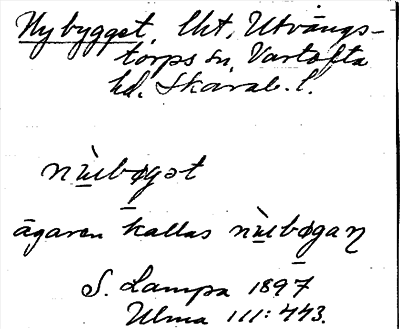 Nybygget, lht, Utvängs-
torps sn, Vartofta
hd. Skarab. l.
nùbøgət
ägaren kallas nùbøgaɳ
S. Lampa 1897
Ulma 111:443.